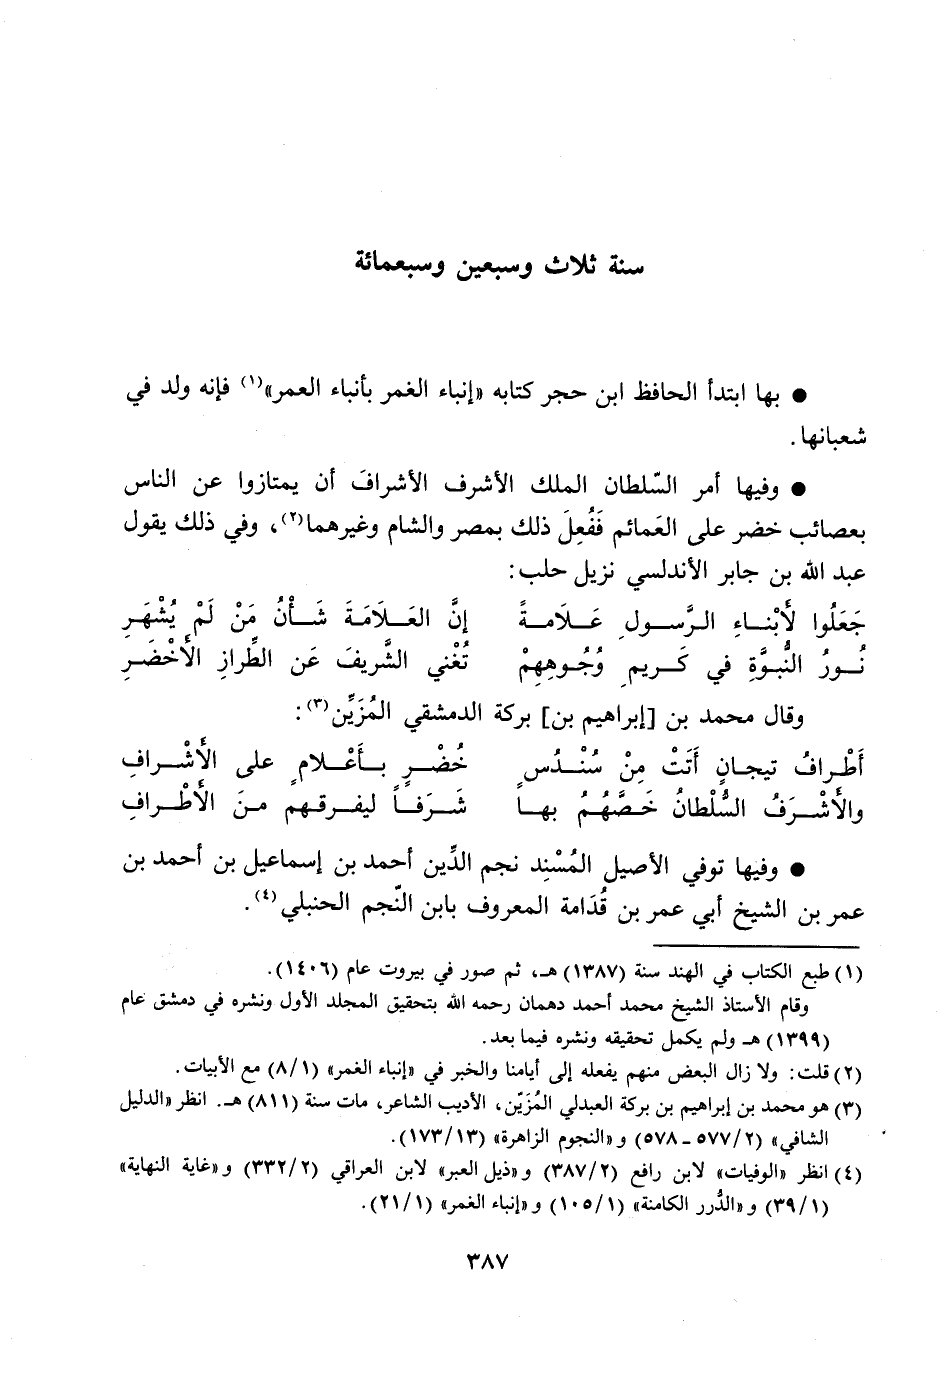 سنة ثلاث وسبعين وسبعمائة
● بها ابتدأ الحافظ ابن حجر كتابه «إنباء الغمر بأنباء العمر»(١) فإنه ولد في
شعبانها.
● وفيها أمر السّلطان الملك الأشرف الأشرافَ أن يمتازوا عن الناس
بعصائب خضر على العَمائم فَفُعِلَ ذلك بمصر والشام وغيرهما(٢)، وفي ذلك يقول
عبد الله بن جابر الأندلسي نزيل حلب:
جَعَلُوا لأَبْنـاءِ الـرَّسـولِ عَـلاَمـةً إنَّ العَـلاَمَةَ شَـأْنُ مَنْ لَمْ يُشْهَرِ
نُـورُ النُّبوَّةِ في كَـريمِ وُجُوهِهِمْ تُغْني الشَّريفَ عَن الطِّرازِ الأَخْضَـرِ
وقال محمد بن [إبراهيم بن] بركة الدمشقي المُزَيِّن(٣):
أَطْرافُ تيجـانٍ أَتَتْ مِنْ سُنْـدُسٍ خُضْـرٍ بـأَعْـلامٍ على الأَشْـرافِ
والأَشْـرَفُ السُّلْطانُ خَصَّهُمُ بهـا شَـرَفـاً ليفـرقـهم مـنَ الأَطْـرافِ
● وفيها توفي الأصيل المُسْنِد نجم الدِّين أحمد بن إسماعيل بن أحمد بن
عمر بن الشيخ أبي عمر بن قُدَامة المعروف بابن النّجم الحنبلي(٤).
(١) طبع الكتاب في الهند سنة (١٣٨٧) هـ، ثم صور في بيروت عام (١٤٠٦).
وقام الأستاذ الشيخ محمد أحمد دهمان رحمه الله بتحقيق المجلد الأول ونشره في دمشق عام
(١٣٩٩) هـ ولم يكمل تحقيقه ونشره فيما بعد.
(٢) قلت: ولا زال البعض منهم يفعله إلى أيامنا والخبر في «إنباء الغمر» (٨/١) مع الأبيات.
(٣) هو محمد بن إبراهيم بن بركة العبدلي المُزَيّن، الأديب الشاعر، مات سنة (٨١١) هـ. انظر «الدليل
الشافي» (٥٧٧/٢ - ٥٧٨) و«النجوم الزاهرة» (١٧٣/١٣).
(٤) انظر «الوفيات» لابن رافع (٣٨٧/٢) و«ذيل العبر» لابن العراقي (٣٣٢/٢) و«غاية النهاية»
(٣٩/١) و«الدُّرر الكامنة» (١٠٥/١) و«إنباء الغمر» (٢١/١).
٣٨٧